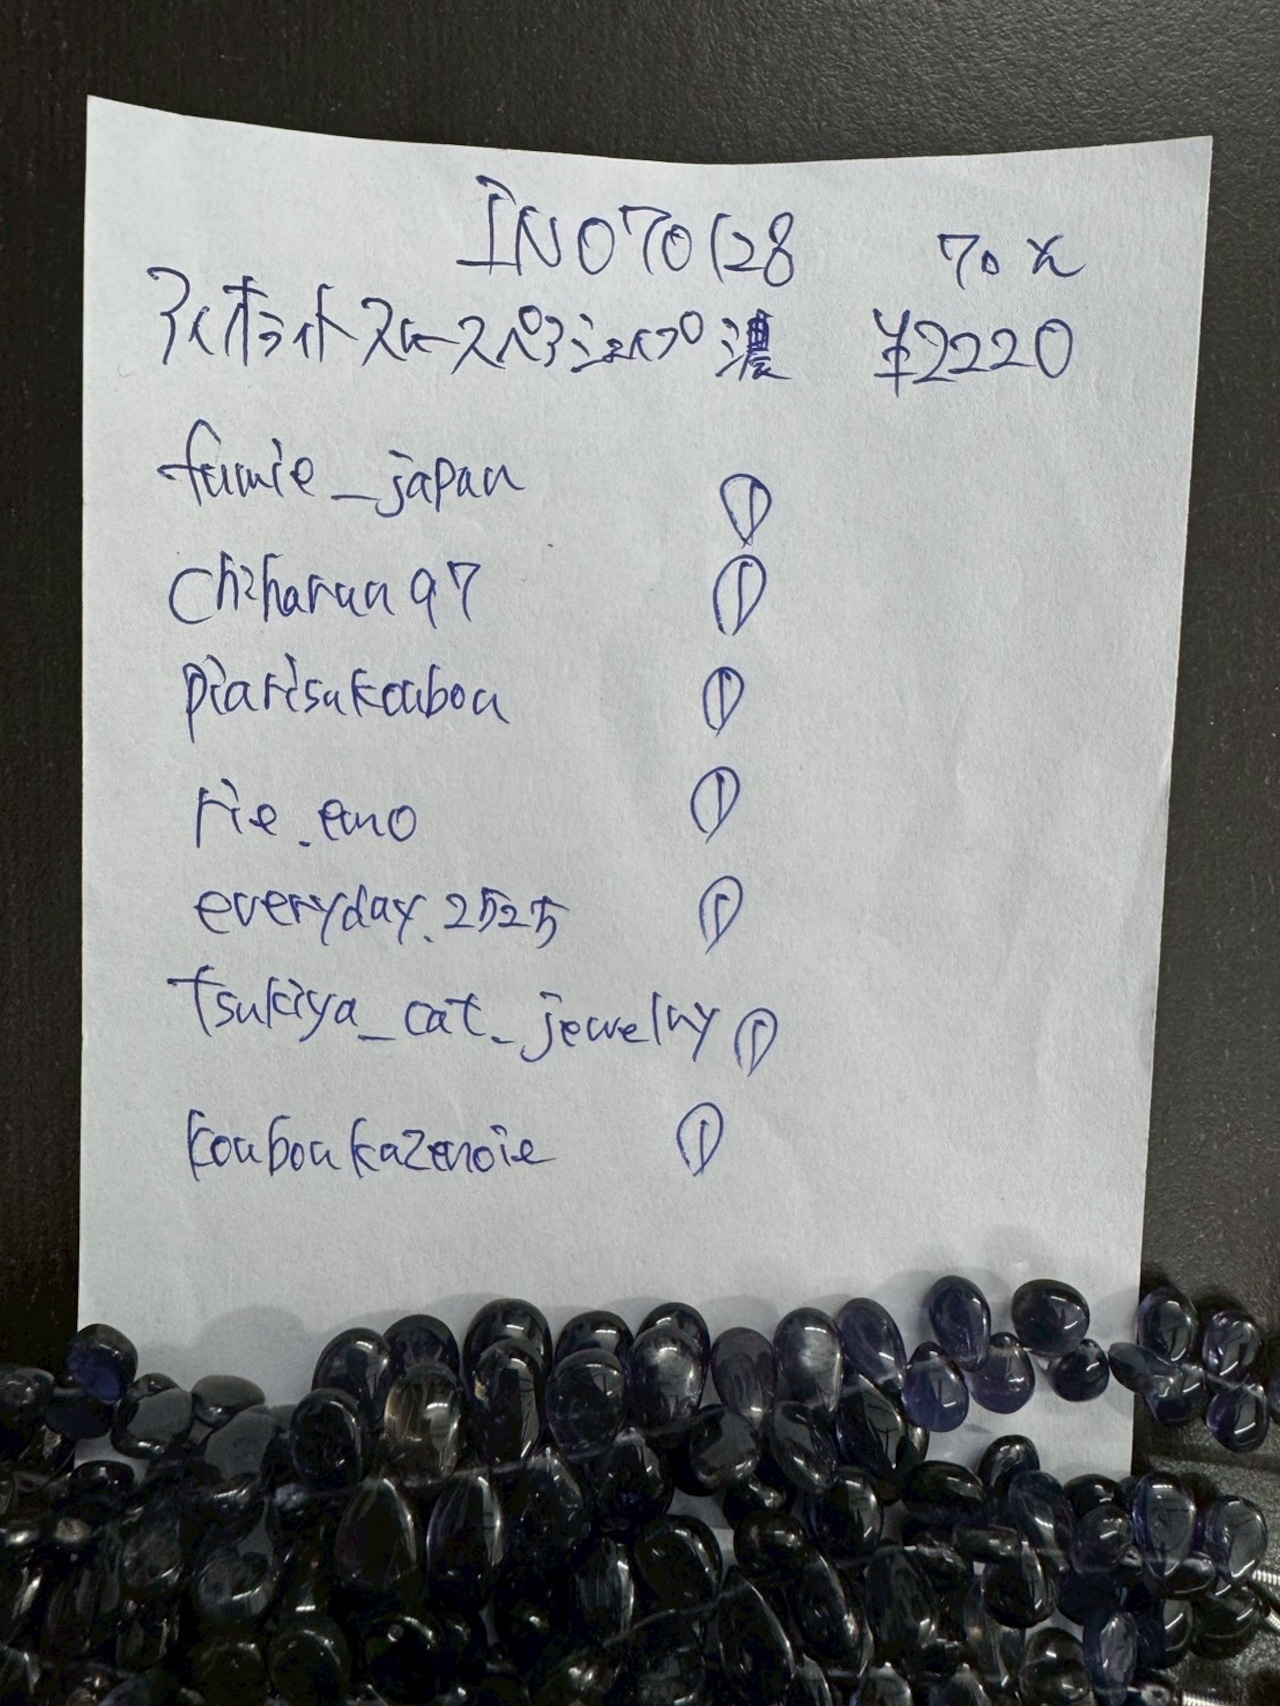 IN070128 70%
アイオライトスムースペアシェイプ 濃 ¥2220
fumie_japan ①
chiharuu97 ①
piarisukoubou ①
rie.eno ①
everyday.2525 ①
tsukiya_cat_jewelry ①
kouboukazenoie ①